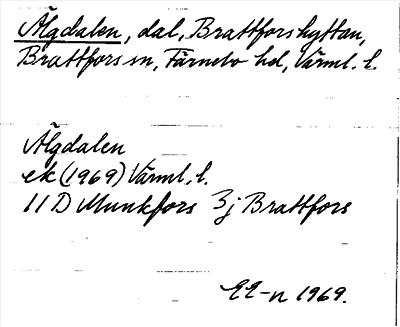 Älgdalen, dal, Brattforshyttan,
Brattfors sn, Färnebo hd, Värml. l.
Älgdalen
ek (1969) Värml. l.
11 D Munkfors 3j Brattfors
EE-n 1969.